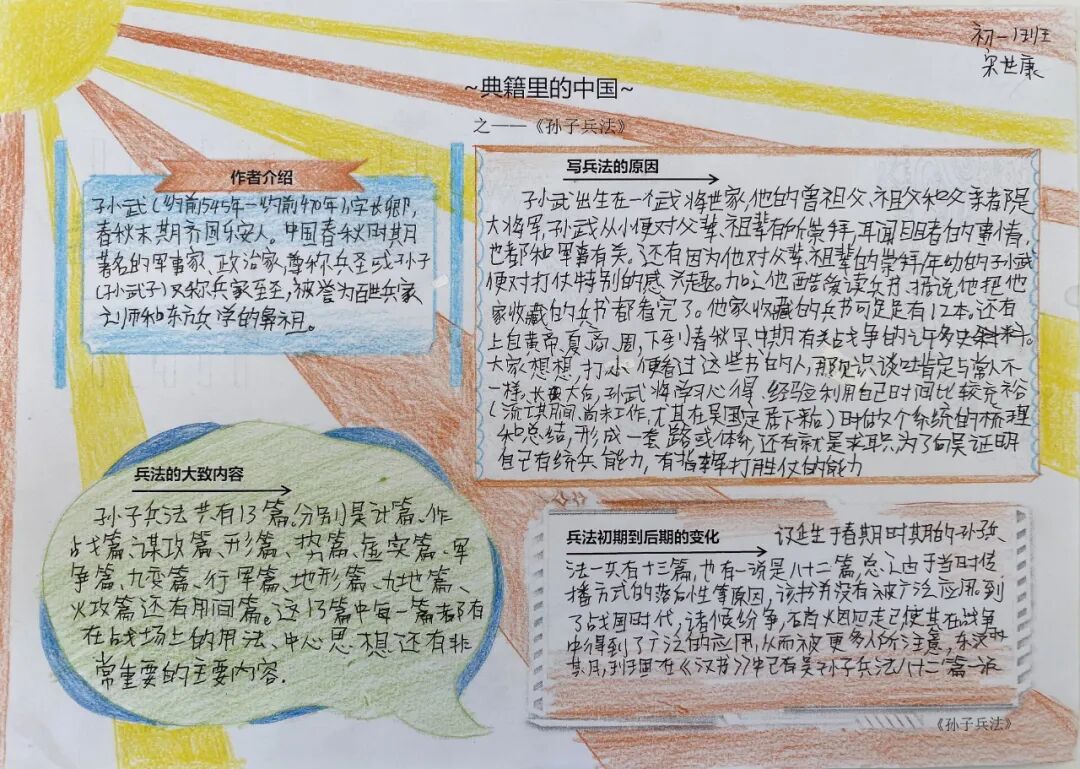 初一1班
宋世康
~典籍里的中国~
之一——《孙子兵法》
作者介绍
孙武(约前545年—约前470年),字长卿,
春秋末期齐国乐安人。中国春秋时期
著名的军事家、政治家,尊称兵圣或孙子
(孙武子)又称兵家至圣,被誉为百世兵家
之师和东方兵学的鼻祖。
写兵法的原因
孙武出生在一个武将世家,他的曾祖父、祖父和父亲都是
大将军,孙武从小便对父辈、祖辈有所崇拜,耳闻目睹的事情,
也都和军事有关。还有因为他对父辈、祖辈的崇拜,年幼的孙武
便对打仗特别的感兴趣。加上他酷爱读兵书,据说他把他
家收藏的兵书都看完了。他家收藏的兵书可足足有12本。还有
上自黄帝、夏、商、周,下到春秋早、中期有关战争的许多史料。
大家想想,打小便看过这些书的人,那见识谈吐肯定与常人不
一样,长大后,孙武将学习心得、经验利用自己时间比较充裕
(流亡其间,尚未工作,尤其在吴国定居下来)时做个系统的梳理
和总结,形成一套路或体系,还有就是求职,为了向吴证明
自己有统兵能力,有指挥打胜仗的能力
兵法的大致内容
孙子兵法共有13篇。分别是计篇、作
战篇、谋攻篇、形篇、势篇、虚实篇、军
争篇、九变篇、行军篇、地形篇、九地篇、
火攻篇还有用间篇。这13篇中每一篇都有
在战场上的用法、中心思想还有非
常重要的主要内容.
兵法初期到后期的变化
诞生于春期时期的孙子兵
法一共有十三篇,也有一说是八十二篇总之由于当时传
播方式的落后性等原因,该书并没有被广泛应用。到
了战国时代,诸侯纷争,石首火四起已使其在战争
中得到了广泛的应用,从而被更多人所注意,东汉
其月,班固在《汉书》中已有吴孙子兵法八十二篇一说
《孙子兵法》